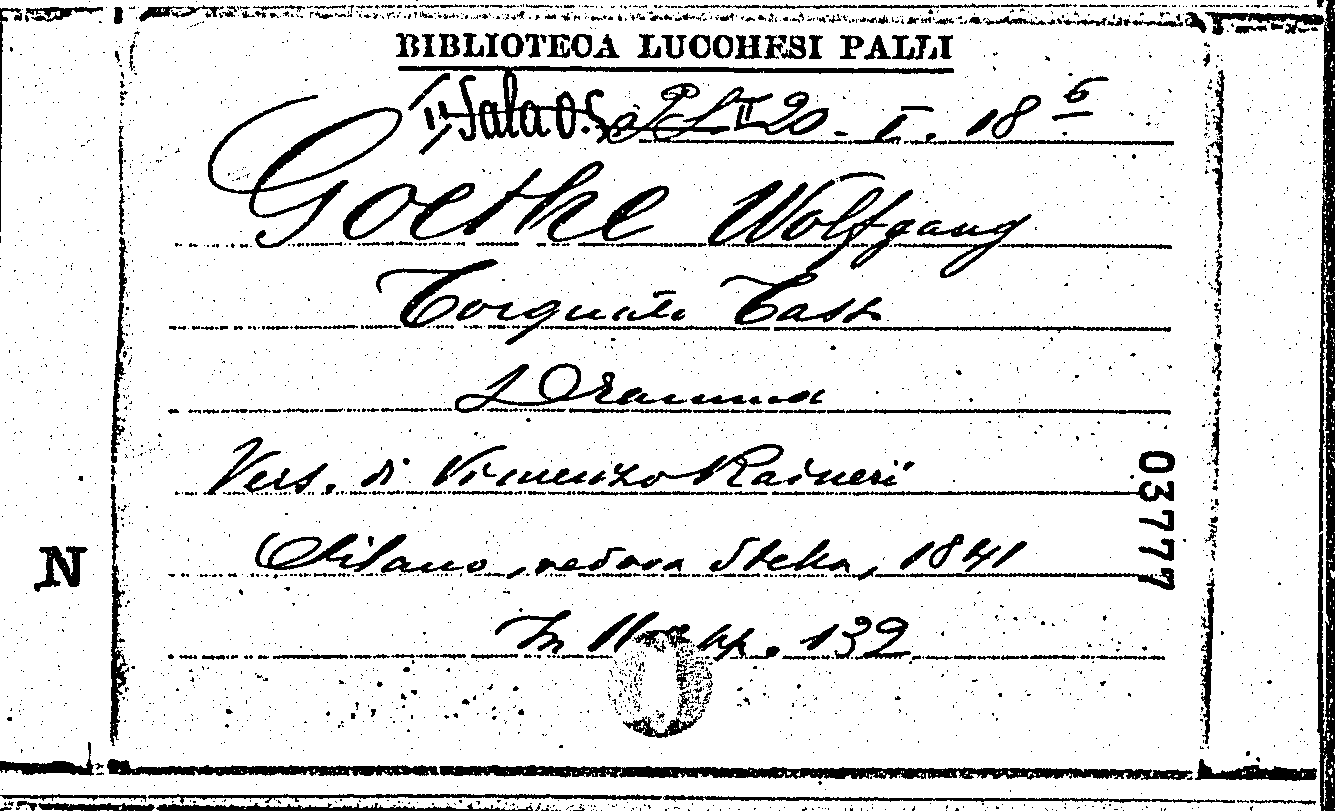 BIBLIOTECA LUCCHESI PALLI
Sala O.S. 20. I. 18 6
Goethe Wolfgang
Torquato Tasso
Dramma
Vers. di Vincenzo Raineri
Milano, vedova Stella, 1841
In pp. 132
03777
N